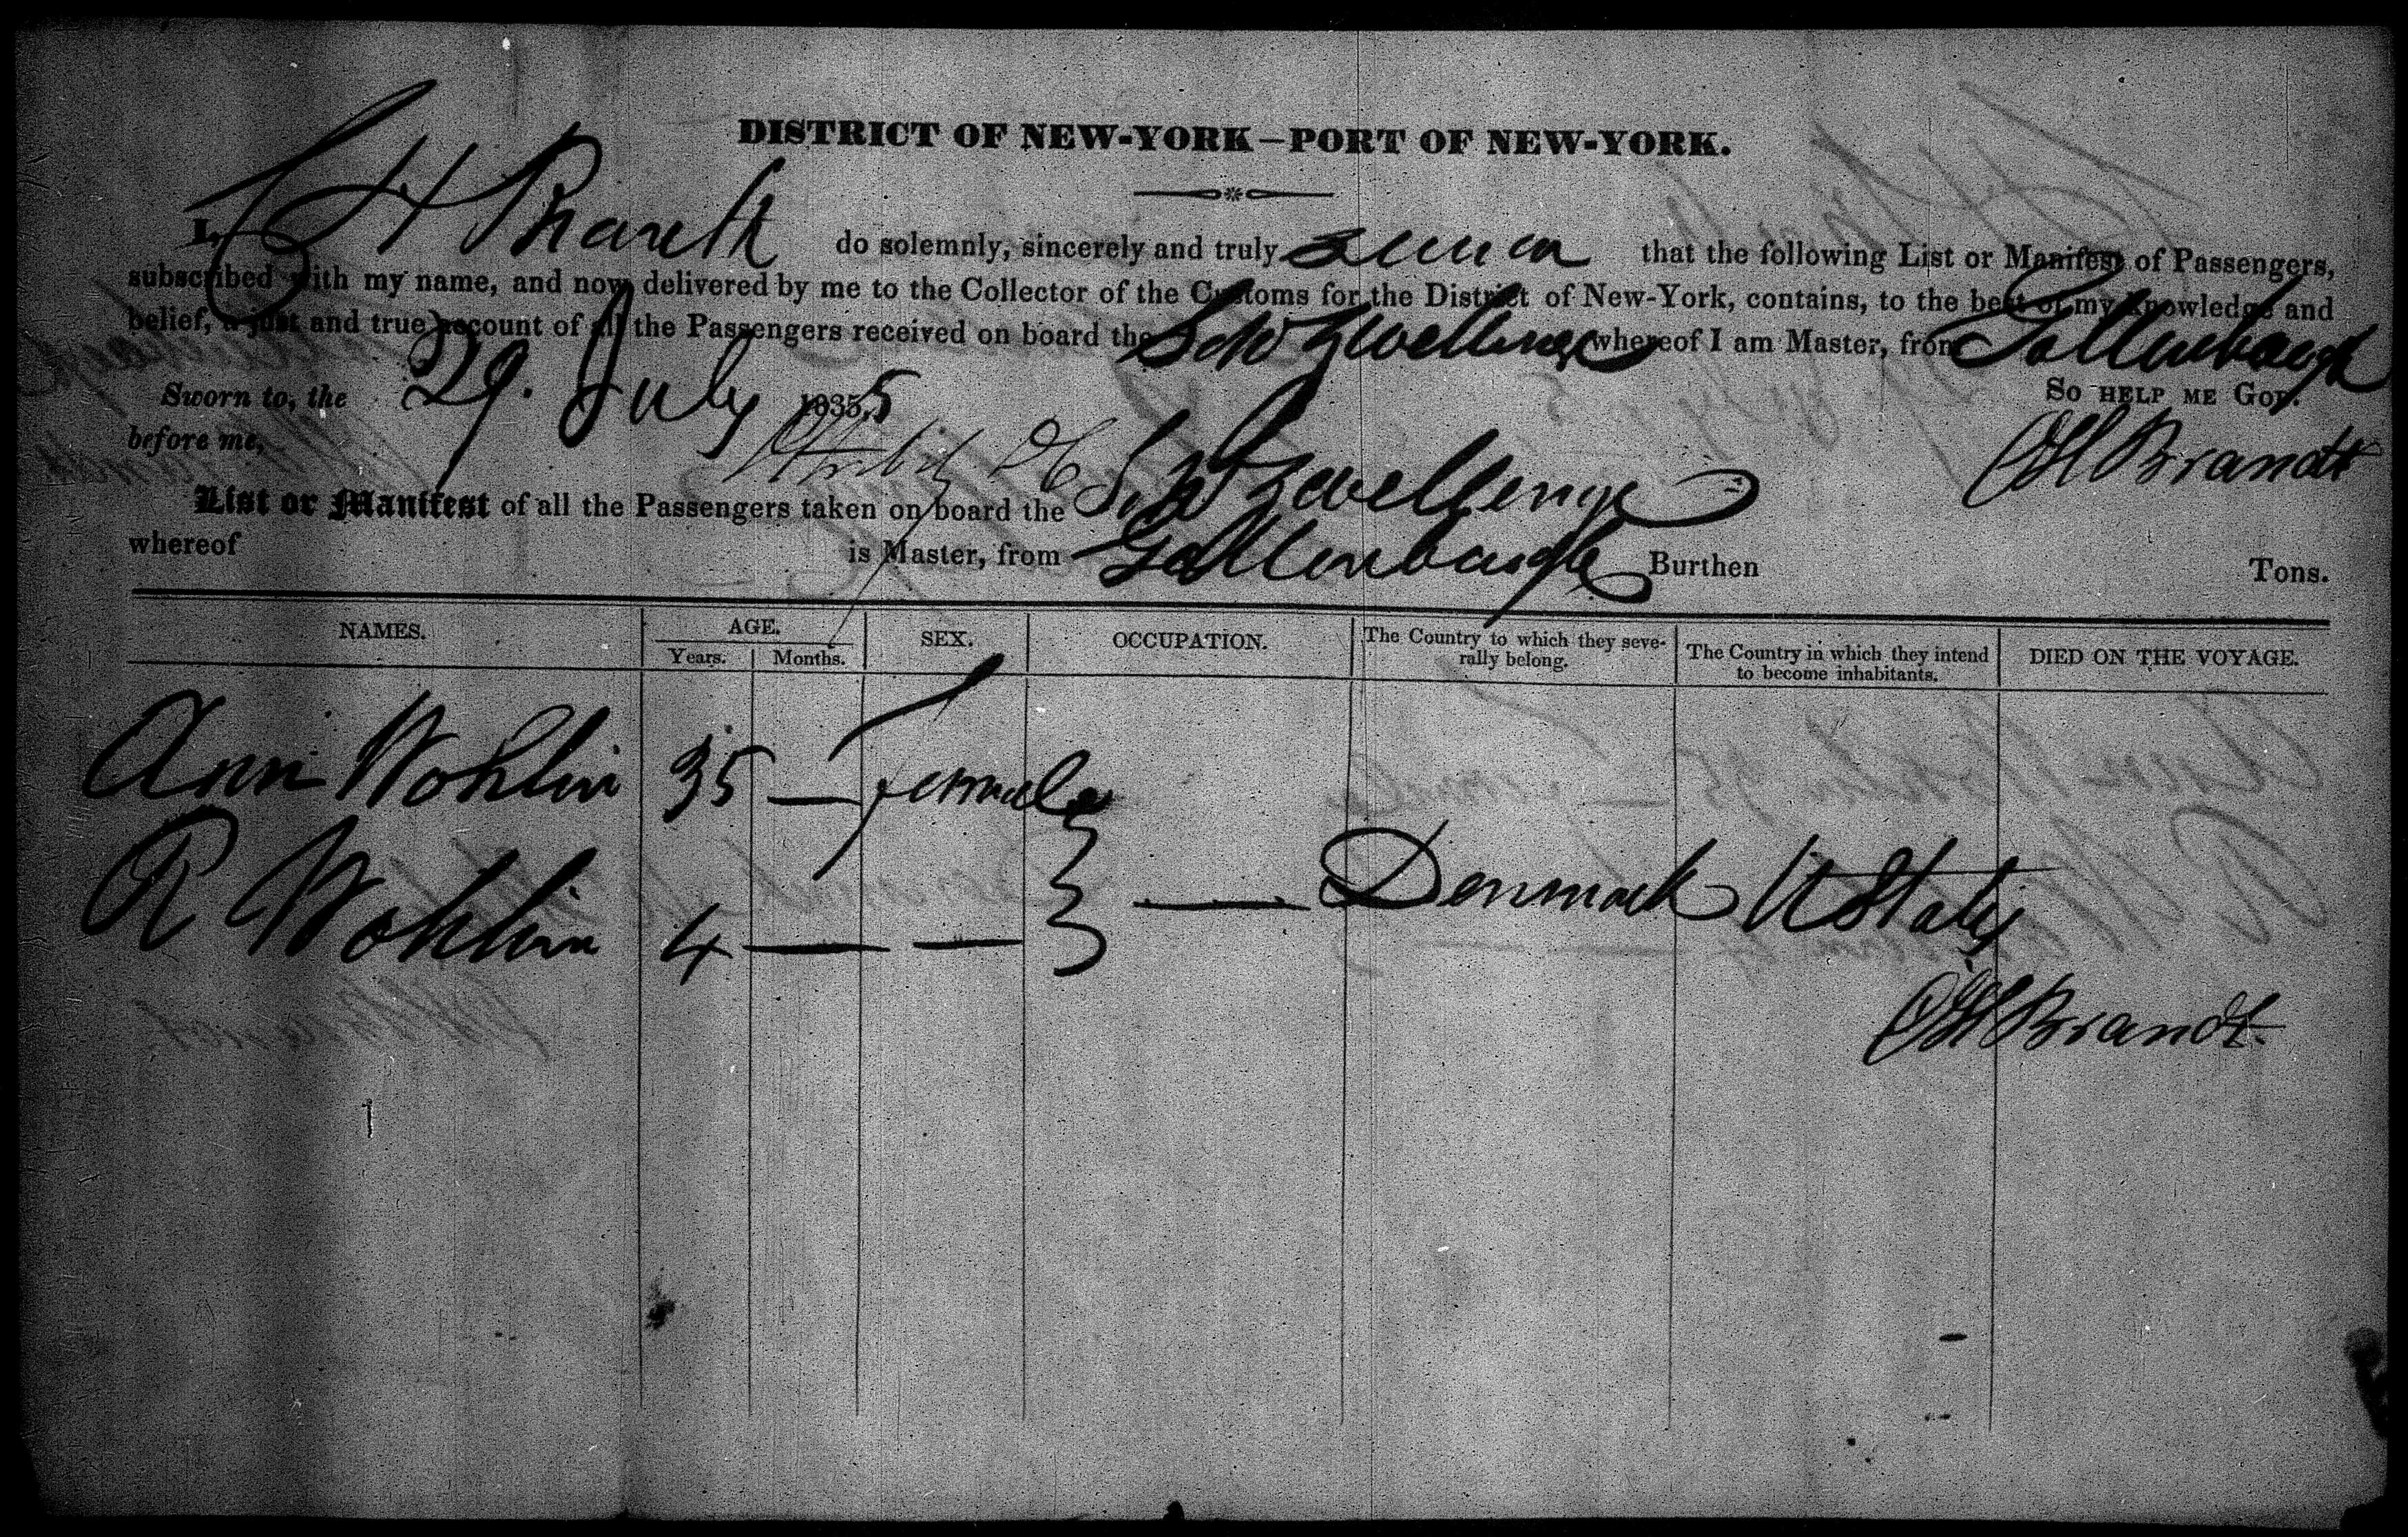 DISTRICT OF NEW-YORK—PORT OF NEW-YORK.
I, H do solemnly, sincerely and truly that the following List or Manifest of Passengers,
subscribed with my name, and now delivered by me to the Collector of the Customs for the District of New-York, contains, to the best of my knowledge and
belief, a just and true account of all the Passengers received on board the whereof I am Master, from
Sworn to, the 29. July 1835 5 SO HELP ME GOD.
before me, Brandt
List or Manifest of all the Passengers taken on board the
whereof is Master, from Burthen Tons.
NAMES. AGE. Years. Months. SEX. OCCUPATION. The Country to which they severally belong. The Country in which they intend to become inhabitants. DIED ON THE VOYAGE.
Ann Wohlin 35 — female
R Wohlin 4 — — — Denmark U States
Brandt